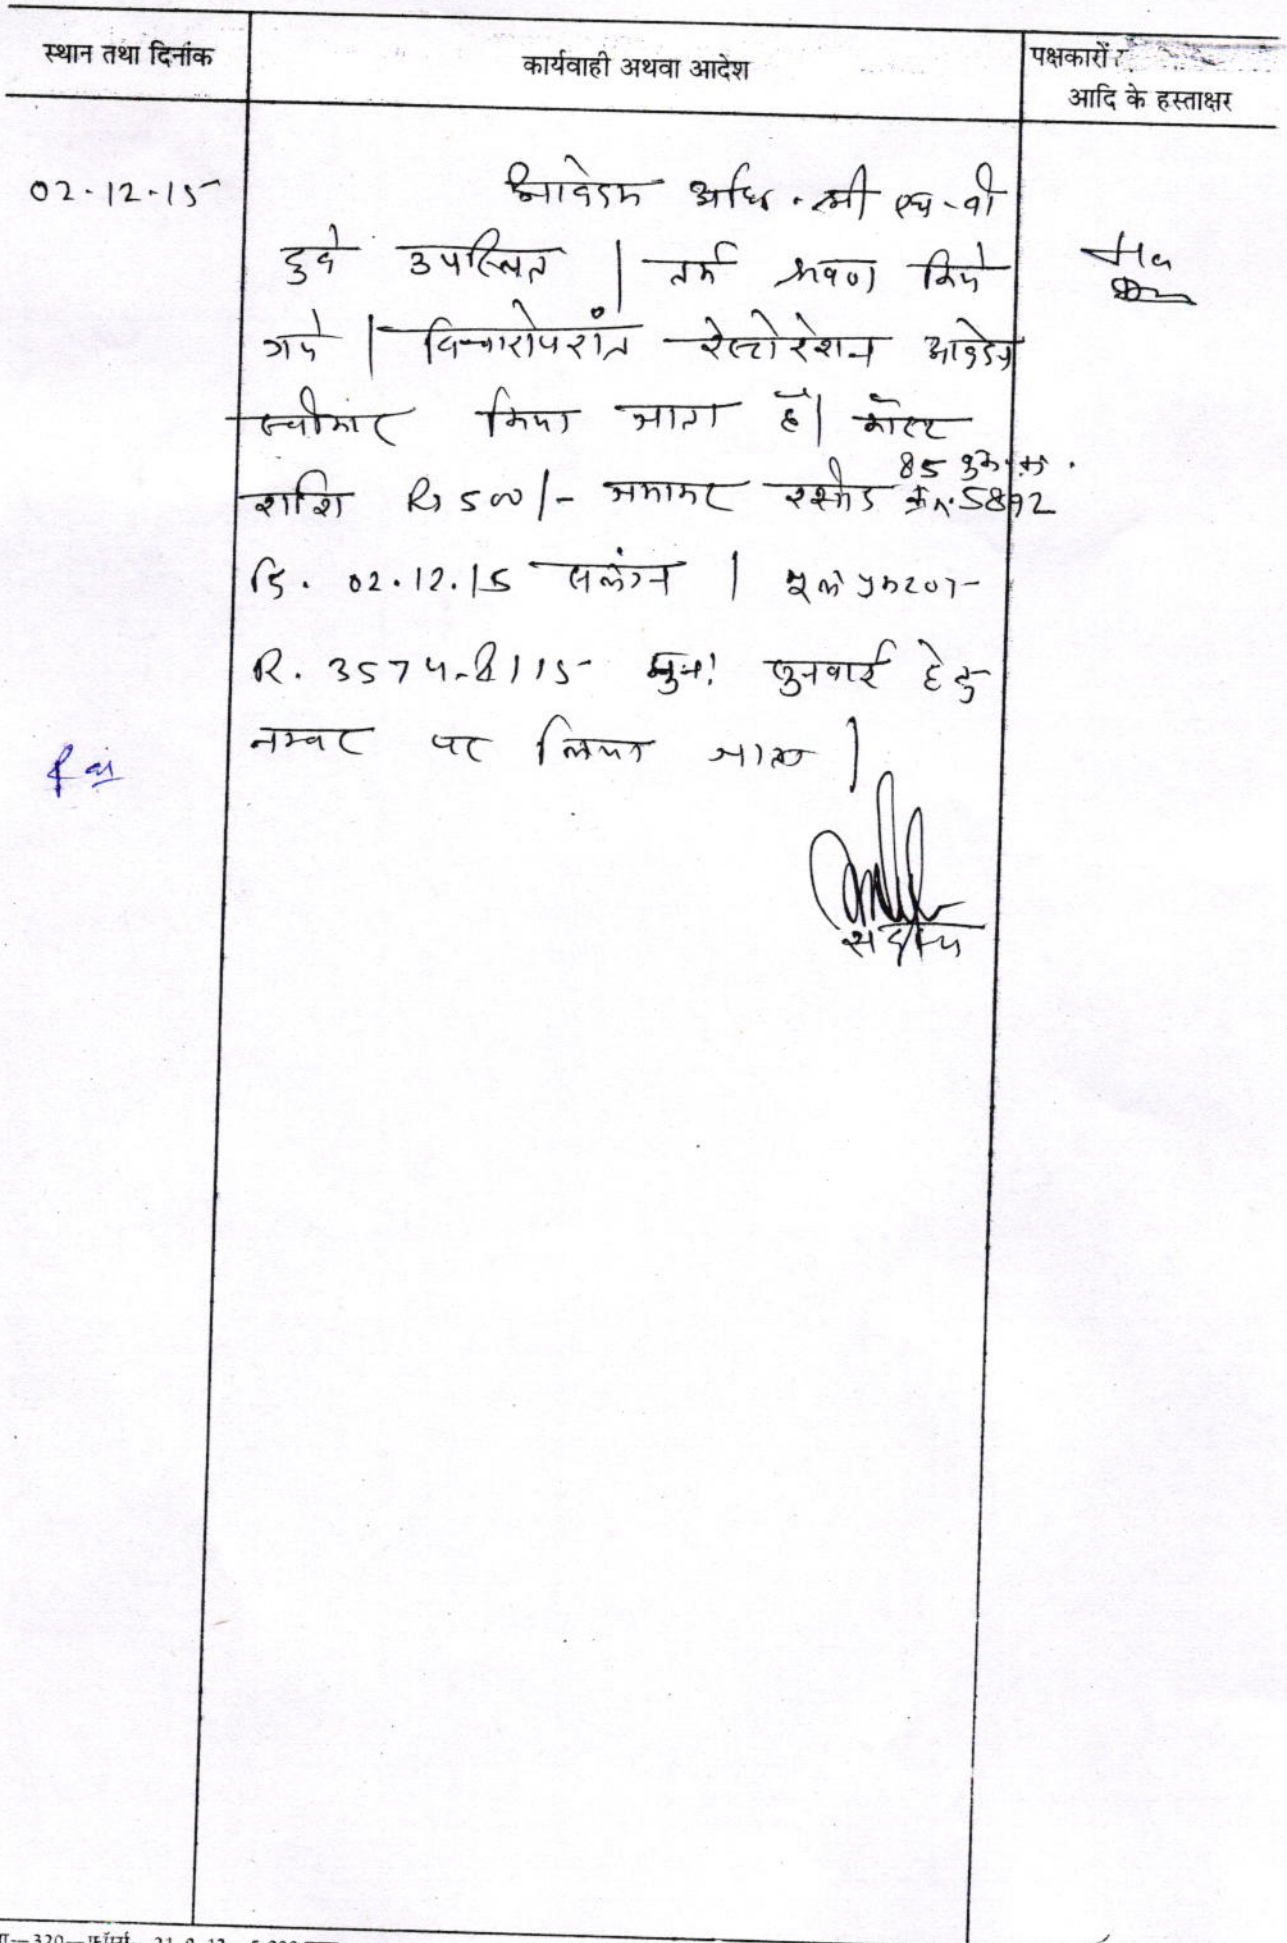 स्थान तथा दिनांक
कार्यवाही अथवा आदेश
पक्षकारों
आदि के हस्ताक्षर
02.12.15
आवेदक अधि. श्री एच.वी
दुवे उपस्थित | तर्क श्रवण किये
गये | विचारोपरांत रेस्टोरेशन आवेदन
स्वीकार किया जाता है| कॉस्ट
राशि Rs 500/- जमाकर रसीद
85 बुक क्र.
क्र. 5892
दि. 02.12.15 सलंग्न | मूल प्रकरण
R. 3574-R/15 पुनः सुनवाई हेतु
नम्बर पर लिया जाता |
सदस्य